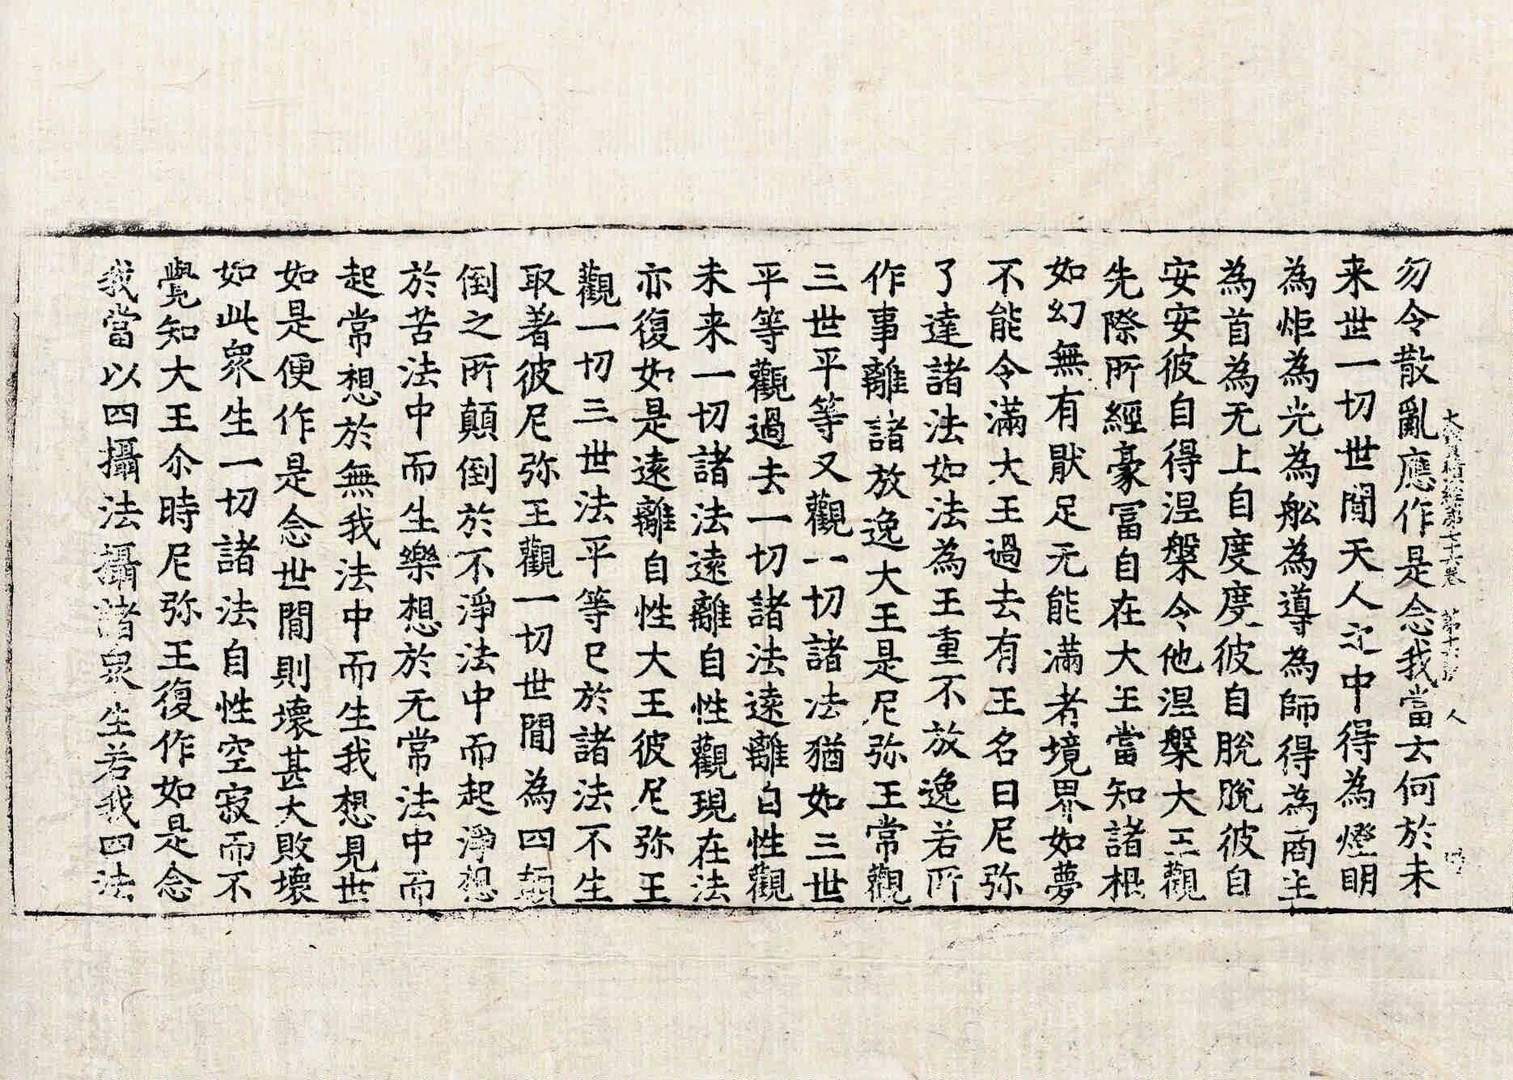 勿令散亂應作是念我當云何於未
来世一切世間天人之中得為燈明
為炬為光為舩為導為師得為商主
為首為无上自度度彼自脫脫彼自
安安彼自得涅槃令他涅槃大王觀
先際所經豪冨自在大王當知諸根
如幻無有猒足无能滿者境界如夢
不能令滿大王過去有王名曰尼弥
了達諸法如法為王重不放逸若所
作事離諸放逸大王是尼弥王常觀
三世平等又觀一切諸法猶如三世
平等觀過去一切諸法遠離自性觀
未来一切諸法遠離自性觀現在法
亦復如是遠離自性大王彼尼弥王
觀一切三世法平等已於諸法不生
取著彼尼弥王觀一切世間為四顛
倒之所顛倒於不淨法中而起淨想
於苦法中而生樂想於无常法中而
起常想於無我法中而生我想見世
如是便作是念世間則壞甚大敗壞
如此衆生一切諸法自性空寂而不
覺知大王尒時尼弥王復作如是念
我當以四攝法攝諸衆生若我四法
大寶積經第七十六卷 第十六張 人